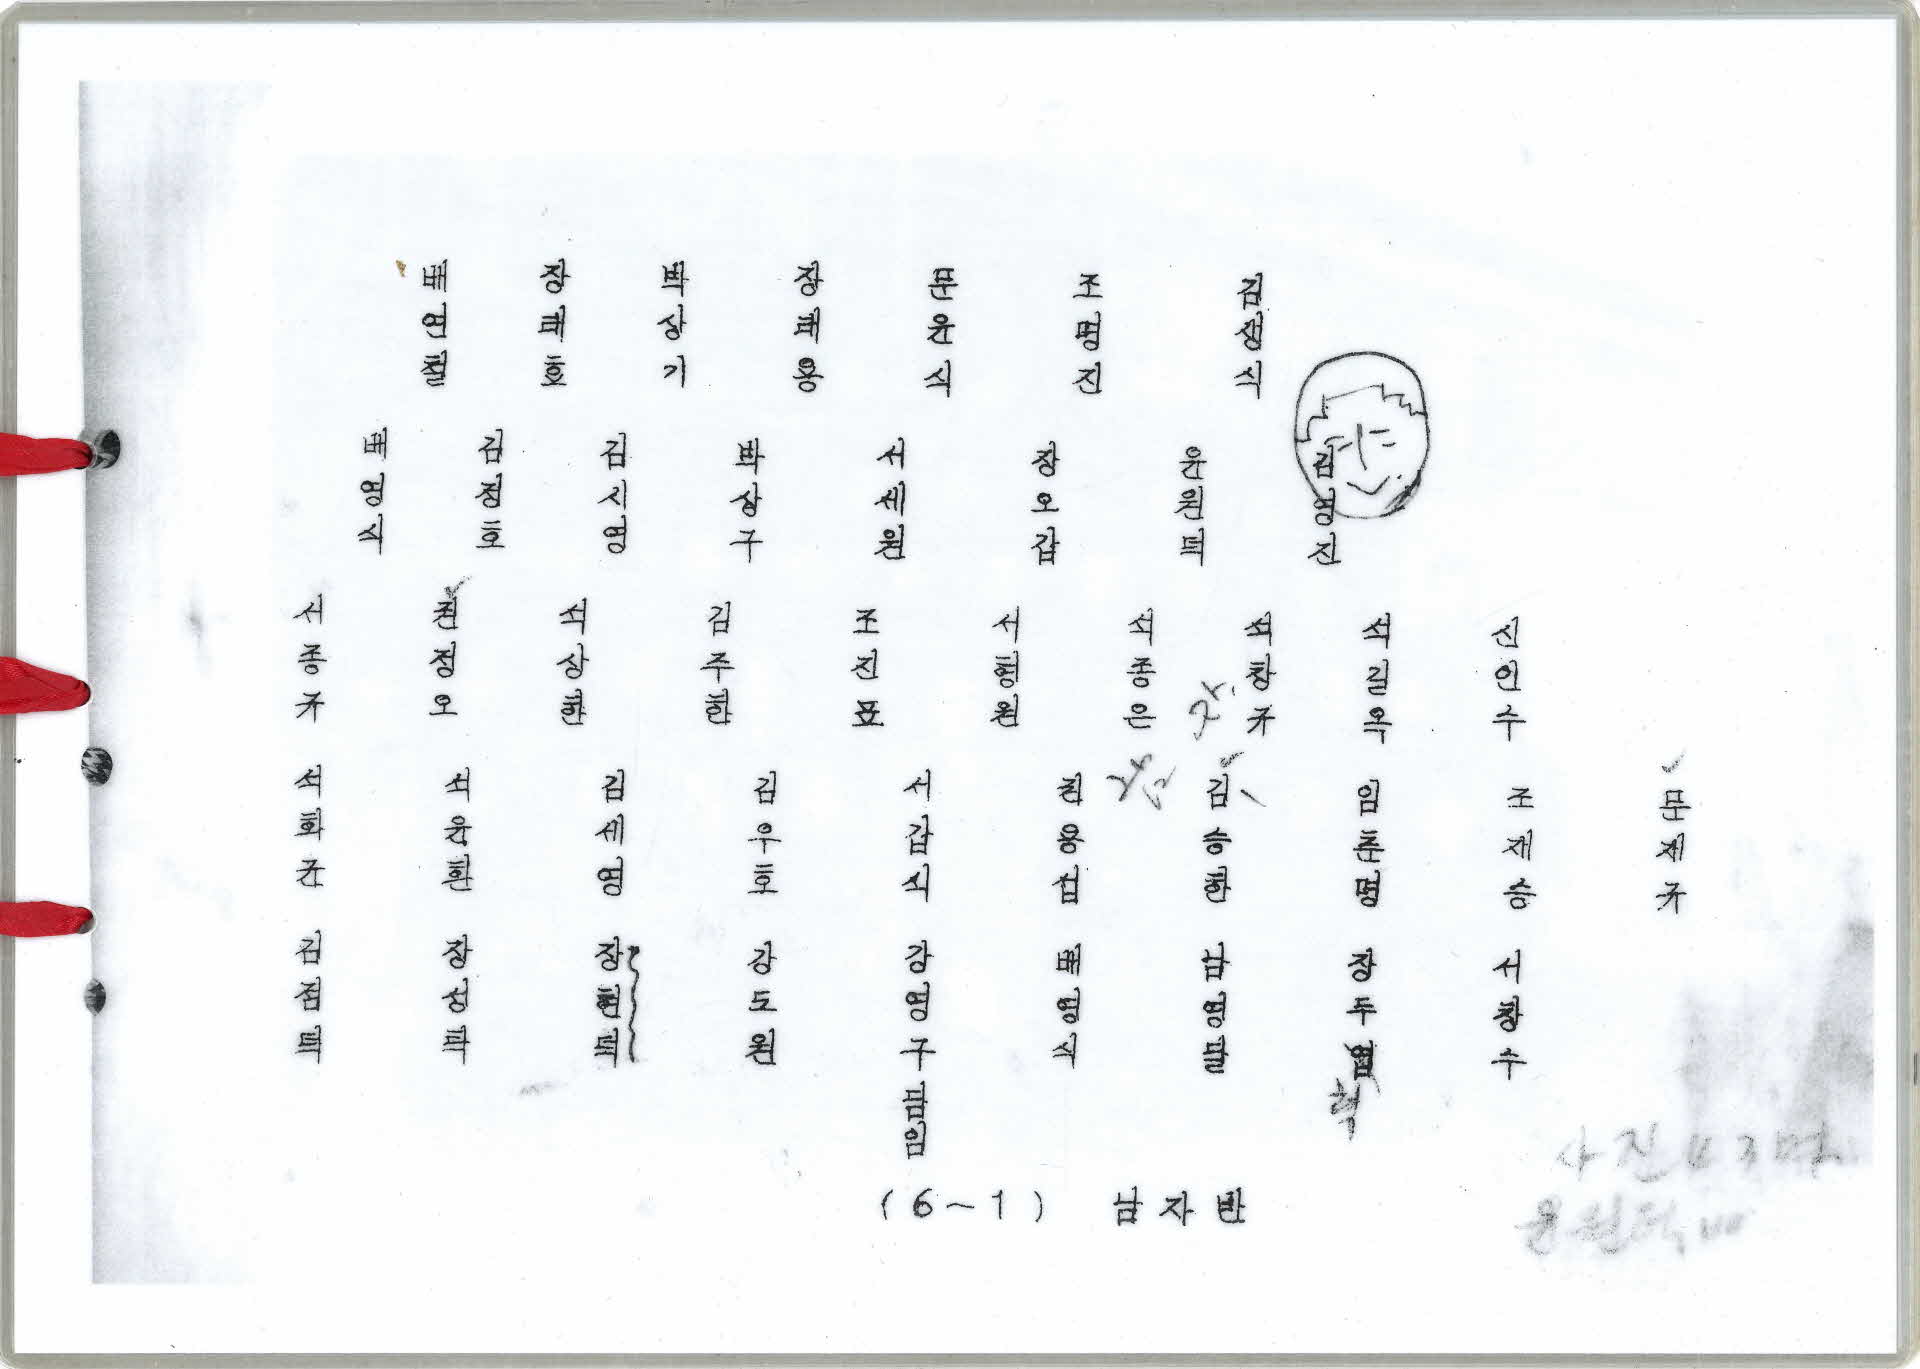 배연철 장태호 박상기 장태용 문윤식 조명진 김성식
배영식 김정호 김시영 박상구 서세원 장오갑 윤원택 김영진
서종규 권정오 석상한 김주한 조진표 서형원 석종은 석창규 석길옥 신인수
석희균 석윤환 김세영 김우호 서갑식 권용섭 김승한 임춘명 조재승 문재규
김점택 장성팍 장현택 강도원 강영구담임 배영식 남영달 장두엽 서창수
혁
(6~1) 남자반
사진 43명
윤원택